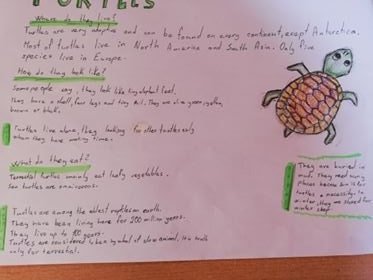 TURTELS
Where do they live?
Turtles are very adaptive and can be found on every continent, except Antarctica.
Most of turtles live in North America and South Asia. Only five
species live in Europe.
How do they look like?
Some people say, they look like tiny elephant feet.
They have a shell, four legs and tiny tail. They are olive green, yellow,
brown or black.
Turtles live alone, they looking for other turtles only
when they have mating time.
What do they eat?
Terrestial turtles mainly eat leafy vegetables.
Sea turtles are omnivorous.
They are buried in
mud. They need sunny
places because sun is for
turtles a necessity. In
winter, they are
winter sleep.
Turtles are among the oldest reptiles on earth.
They have been living here for 200 million years.
They live up to 100 years.
Turtles are considered to be a symbol of slow animal. It is truth
only for terrestal.